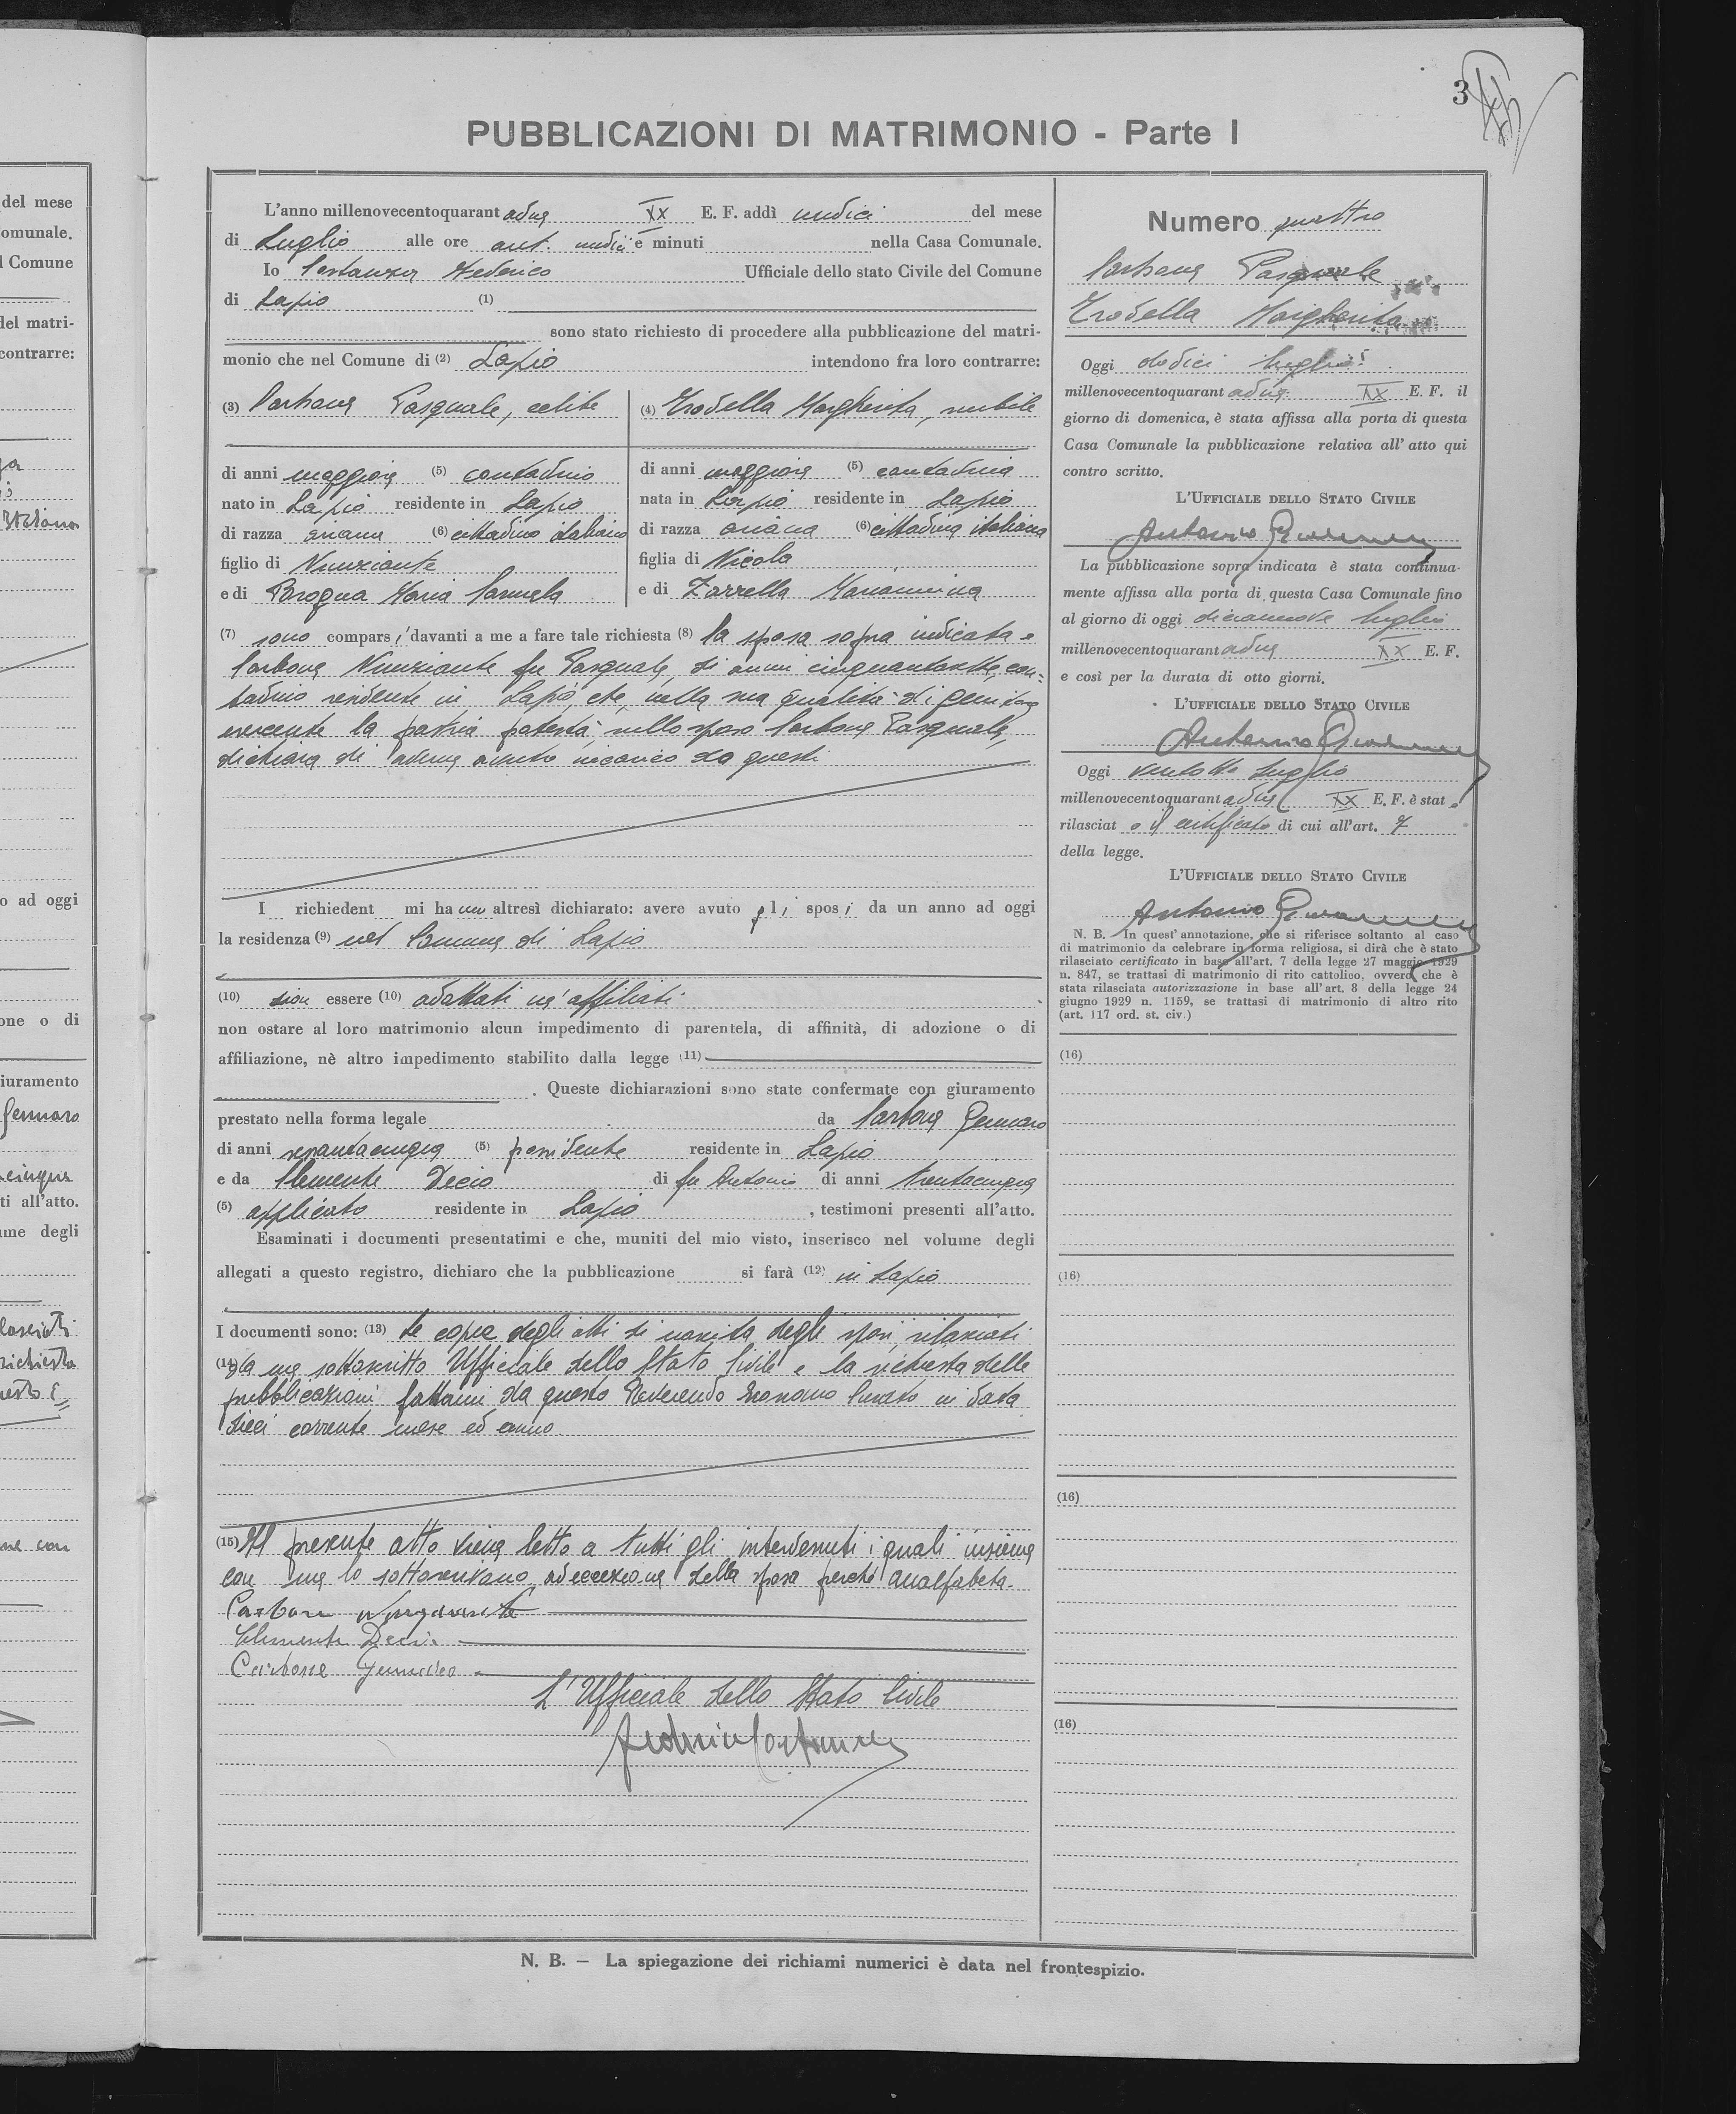 3
PUBBLICAZIONI DI MATRIMONIO - Parte I
L'anno millenovecentoquarant adue XX E. F. addì undici del mese
di Luglio alle ore ant. undici e minuti nella Casa Comunale.
Io Costanza Federico Ufficiale dello stato Civile del Comune
di Lapio (1)
sono stato richiesto di procedere alla pubblicazione del matri-
monio che nel Comune di (2) Lapio intendono fra loro contrarre:
(3) Carbone Pasquale, celibe
di anni maggiore (5) contadino
nato in Lapio residente in Lapio
di razza ariana (6) cittadino italiano
figlio di Nunziante
e di Maria Carmela
(4) Trodella Margherita, nubile
di anni maggiore (5) contadina
nata in Lapio residente in Lapio
di razza ariana (6) cittadina italiana
figlia di Nicola
e di Zarrella Mariannina
(7) sono compars i davanti a me a fare tale richiesta (8) la sposa sopra indicata e
Carbone Nunziante fu Pasquale, di anni cinquantasette, con=
tadino residente in Lapio, che, nella sua qualità di genitore
esercente la patria potestà, sullo sposo Carbone Pasquale,
dichiara di averne avuto incarico da questi
I richiedent mi ha nno altresì dichiarato: avere avuto gli spos i da un anno ad oggi
la residenza (9) nel Comune di Lapio
(10) non essere (10) adottati nè affiliati
non ostare al loro matrimonio alcun impedimento di parentela, di affinità, di adozione o di
affiliazione, nè altro impedimento stabilito dalla legge (11)
. Queste dichiarazioni sono state confermate con giuramento
prestato nella forma legale da Carbone Gennaro
di anni sessantacinque (5) possidente residente in Lapio
e da Clemente Decio di fu Antonio di anni trentacinque
(5) applicato residente in Lapio , testimoni presenti all'atto.
Esaminati i documenti presentatimi e che, muniti del mio visto, inserisco nel volume degli
allegati a questo registro, dichiaro che la pubblicazione si farà (12) in Lapio
I documenti sono: (13) le copie degli atti di nascita degli sposi, rilasciati
(14) da me sottoscritto Ufficiale dello Stato Civile e la richiesta delle
pubblicazioni fattami da questo Reverendo Economo Curato in data
dieci corrente mese ed anno
(15) Il presente atto viene letto a tutti gli intervenuti i quali insieme
con me lo sottoscrivono, ad eccezione della sposa perchè analfabeta.
Carbone Nunziante
Clemente Decio
Carbone Gennaro
L'Ufficiale dello Stato Civile
Federico Costanza
Numero quattro
Carbone Pasquale
Trodella Margherita
Oggi dodici luglio
millenovecentoquarant adue XX E. F. il
giorno di domenica, è stata affissa alla porta di questa
Casa Comunale la pubblicazione relativa all' atto qui
contro scritto.
L'UFFICIALE DELLO STATO CIVILE
Antonio
La pubblicazione sopra indicata è stata continua-
mente affissa alla porta di questa Casa Comunale fino
al giorno di oggi diciannove luglio
millenovecentoquarant adue XX E. F.
e così per la durata di otto giorni.
L'UFFICIALE DELLO STATO CIVILE
Antonio
Oggi ventotto Luglio
millenovecentoquarant adue XX E. F. è stat o
rilasciat o il certificato di cui all'art. 7
della legge.
L'UFFICIALE DELLO STATO CIVILE
Antonio
N. B. In quest' annotazione, che si riferisce soltanto al caso
di matrimonio da celebrare in forma religiosa, si dirà che è stato
rilasciato certificato in base all'art. 7 della legge 27 maggio 1929
n. 847, se trattasi di matrimonio di rito cattolico, ovvero che è
stata rilasciata autorizzazione in base all'art. 8 della legge 24
giugno 1929 n. 1159, se trattasi di matrimonio di altro rito
(art. 117 ord. st. civ.)
(16)
(16)
(16)
(16)
N. B. — La spiegazione dei richiami numerici è data nel frontespizio.